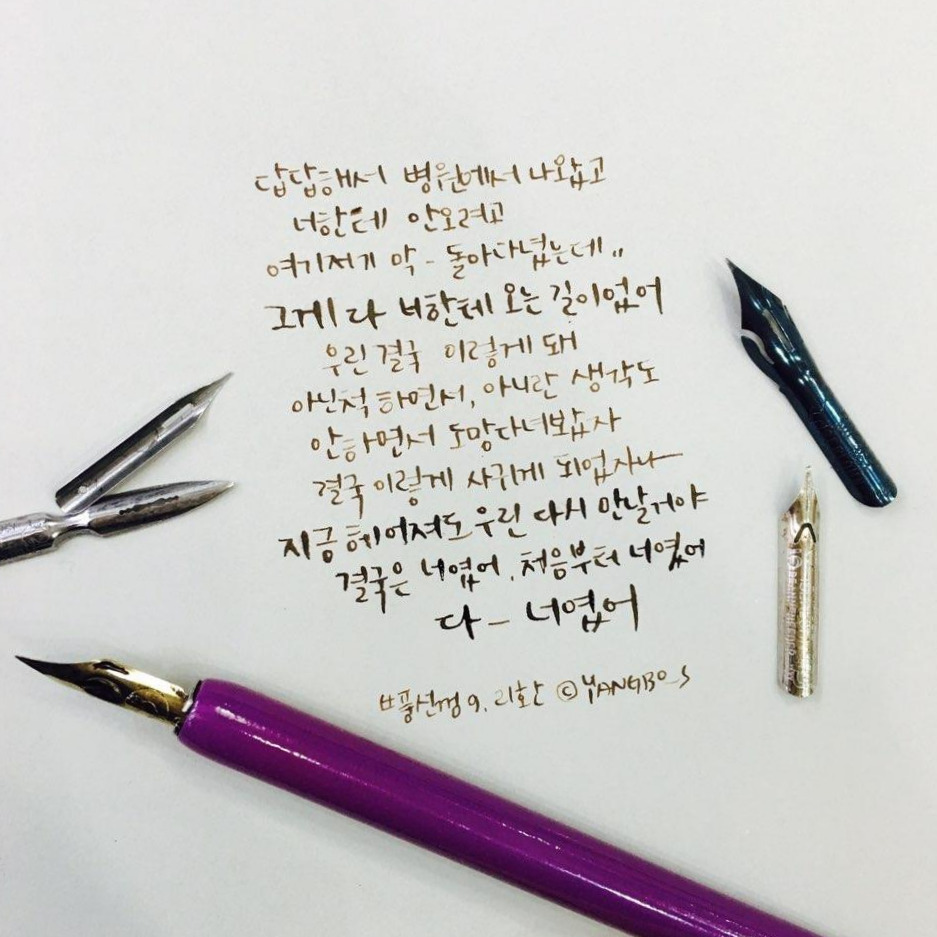 답답해서 병원에서 나왔고
너한테 안오려고
여기저기 막- 돌아다녔는데..
그게 다 너한테 오는 길이었어
우린 결국 이렇게 돼
아닌척 하면서, 아니란 생각도
안하면서 도망다녀봤자
결국 이렇게 사귀게 되었자나
지금 헤어져도 우린 다시 만날거야
결국은 너였어, 처음부터 너였어
다- 너였어
리환 ©YANGBO_S